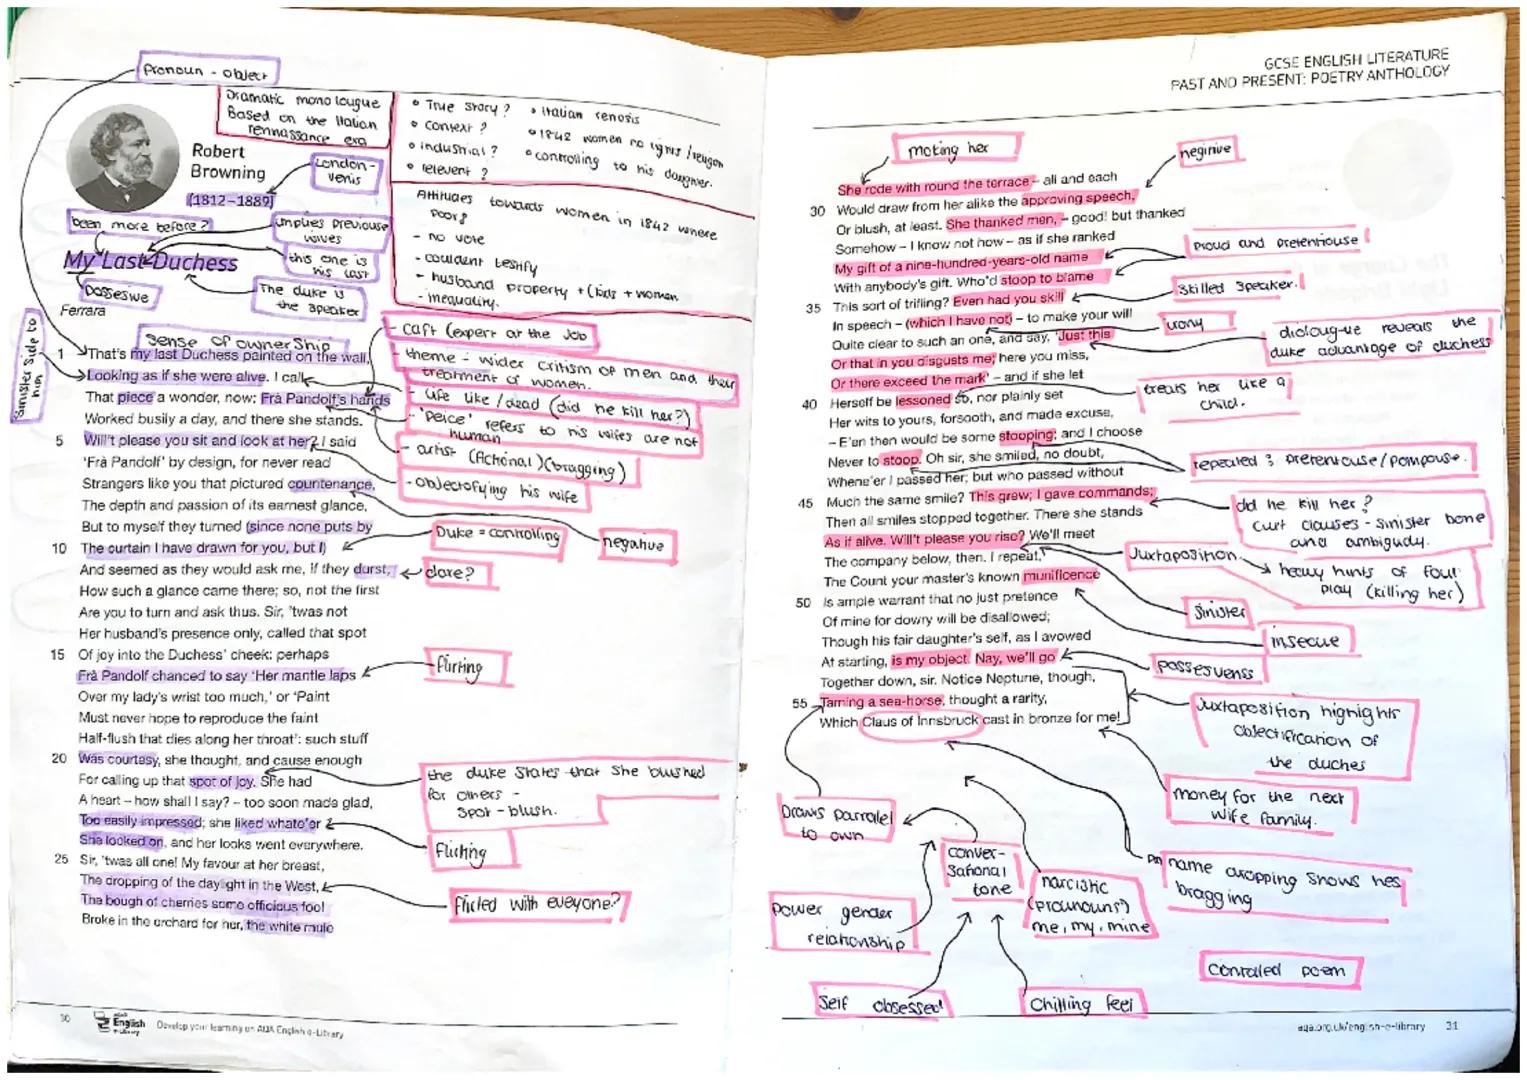 Pronoun - object
Dramatic monolougue
Based on the Italian
rennassance era
• True story?
• Context?
• industrial?
• relevent?
• Italian renosis
• 1842 women no rights/religon
• controlling to his daughter.
Robert
Browning
(1812–1889)
London-
venis
been more before?
implies previouse
wives
this one is
his last
My Last Duchess
Possesive
The duke is
the speaker
Ferrara
Attitudes towards women in 1842 where
poor;
- no vote
- couldent testify
- husband property + (kids + woman
- inequality.
Sinister side to
him
sense of ownership
1 That's my last Duchess painted on the wall,
Looking as if she were alive. I call
That piece a wonder, now; Frà Pandolf's hands
Worked busily a day, and there she stands.
5 Will't please you sit and look at her? I said
'Frà Pandolf' by design, for never read
Strangers like you that pictured countenance,
The depth and passion of its earnest glance,
But to myself they turned (since none puts by
10 The curtain I have drawn for you, but I)
And seemed as they would ask me, if they durst,
How such a glance came there; so, not the first
Are you to turn and ask thus. Sir, 'twas not
Her husband's presence only, called that spot
15 Of joy into the Duchess' cheek: perhaps
Frà Pandolf chanced to say 'Her mantle laps
Over my lady's wrist too much,' or 'Paint
Must never hope to reproduce the faint
Half-flush that dies along her throat': such stuff
20 Was courtesy, she thought, and cause enough
For calling up that spot of joy. She had
A heart – how shall I say? – too soon made glad,
Too easily impressed; she liked whate'er
She looked on, and her looks went everywhere.
25 Sir, 'twas all one! My favour at her breast,
The dropping of the daylight in the West,
The bough of cherries some officious fool
Broke in the orchard for her, the white mule
- caft (expert at the job
- theme - wider critism of men and their
treatment of women.
- life like / dead (did he kill her?)
- 'peice' refers to his wifes are not
human
- artist (fictional) (bragging)
- objectofying his wife
Duke = controlling
negative
dare?
flirting
the duke states that she blushed
for others -
spot - blush.
Flirting
flirted with eveyone?
30
AQA
English
e-Library
Develop your learning on AQA English e-Library
GCSE ENGLISH LITERATURE
PAST AND PRESENT: POETRY ANTHOLOGY
making her
negitive
She rode with round the terrace – all and each
30 Would draw from her alike the approving speech,
Or blush, at least. She thanked men, – good! but thanked
Somehow – I know not how – as if she ranked
My gift of a nine-hundred-years-old name
With anybody's gift. Who'd stoop to blame
35 This sort of trifling? Even had you skill
In speech – (which I have not) – to make your will
Quite clear to such an one, and say, 'Just this
Or that in you disgusts me; here you miss,
Or there exceed the mark' – and if she let
40 Herself be lessoned so, nor plainly set
Her wits to yours, forsooth, and made excuse,
– E'en then would be some stooping; and I choose
Never to stoop. Oh sir, she smiled, no doubt,
Whene'er I passed her; but who passed without
45 Much the same smile? This grew; I gave commands;
Then all smiles stopped together. There she stands
As if alive. Will't please you rise? We'll meet
The company below, then. I repeat,
The Count your master's known munificence
50 Is ample warrant that no just pretence
Of mine for dowry will be disallowed;
Though his fair daughter's self, as I avowed
At starting, is my object. Nay, we'll go
Together down, sir. Notice Neptune, though,
55 Taming a sea-horse, thought a rarity,
Which Claus of Innsbruck cast in bronze for me!
Proud and pretenhouse
Skilled speaker.
irony
dialougue reveals the
duke advantage of duchess
treats her like a
child.
repeated ; pretentouse/pompouse.
did he kill her?
curt clauses - sinister tone
and ambigudy.
Juxtaposition
heavy hints of foul
play (killing her)
Sinister
insecue
possesivenss
Juxtaposition highlights
objectification of
the duches
money for the next
wife family.
Draws parralel
to own
conver-
sational
tone
narcistic
(pronouns?)
me, my, mine
name dropping shows hes
bragging
power gender
relationship
Controlled poem
Self obsessed
Chilling feel
aqa.org.uk/english-e-library 31